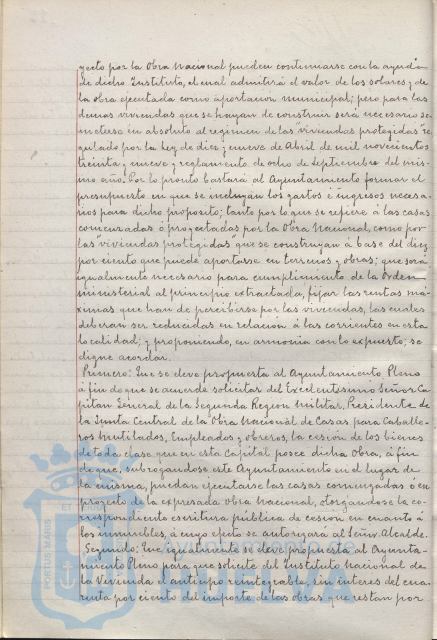 yecto por la Obra Nacional pueden continuarse con la ayuda
de dicho Instituto, el cual admitirá el valor de los solares y de
la obra ejecutada como aportación municipal; pero para las
demas viviendas que se hayan de construir será necesario so-
meterse en absoluto al regimen de las "viviendas protegidas re-
gulado por la ley de diez y nueve de Abril de mil novecientos
treinta y nueve y reglamento de ocho de septiembre del mis-
mo año. Por lo pronto bastará al Ayuntamiento formar el
presupuesto en que se incluyan los gastos é ingresos necesa-
rios para dicho proposito; tanto por lo que se refiere á las casas
comenzadas ó proyectadas por la Obra Nacional, como por
las "viviendas protegidas" que se construyan á base del diez
por ciento que puede aportarse en terrenos y obras; que será
igualmente necesario para cumplimiento de la Orden
ministerial al principio extractada, fijar las rentas má-
ximas que han de percibirse por las viviendas, las cuales
deberan ser reducidas en relación á las corrientes en esta
localidad; y proponiendo, en armonia con lo expuesto, se
digne acordar.
Primero: Que se eleve propuesta al Ayuntamiento Pleno
á fin de que se acuerde solicitar del Excelentisimo Señor Ca-
pitan General de la Segunda Region Militar, Presidente de
la Junta Central de la Obra Nacional de Casas para Caballe-
ros Mutilados, Empleados y obreros, la cesión de los bienes
de toda clase que en esta Capital posee dicha Obra, á fin
de que, subrogandose este Ayuntamiento en el lugar de
la misma, puedan ejecutarse las casas comenzadas ó en
proyecto de la expresada obra Nacional, otorgandose la co-
rrespondiente escritura pública de cesión en cuanto á
los inmuebles, á cuyo efecto se autorizara al Señor Alcalde.
Segundo: Que igualmente se eleve propuesta al Ayunta-
miento Pleno para que solicite del Instituto Nacional de
la Vivienda el anticipo reintegrable, sin interes del cua-
renta por ciento del importe de las obras que restan por
PORTUS MARIS